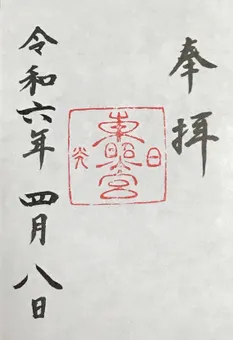 奉拝
日光
東照宮
令和六年四月八日